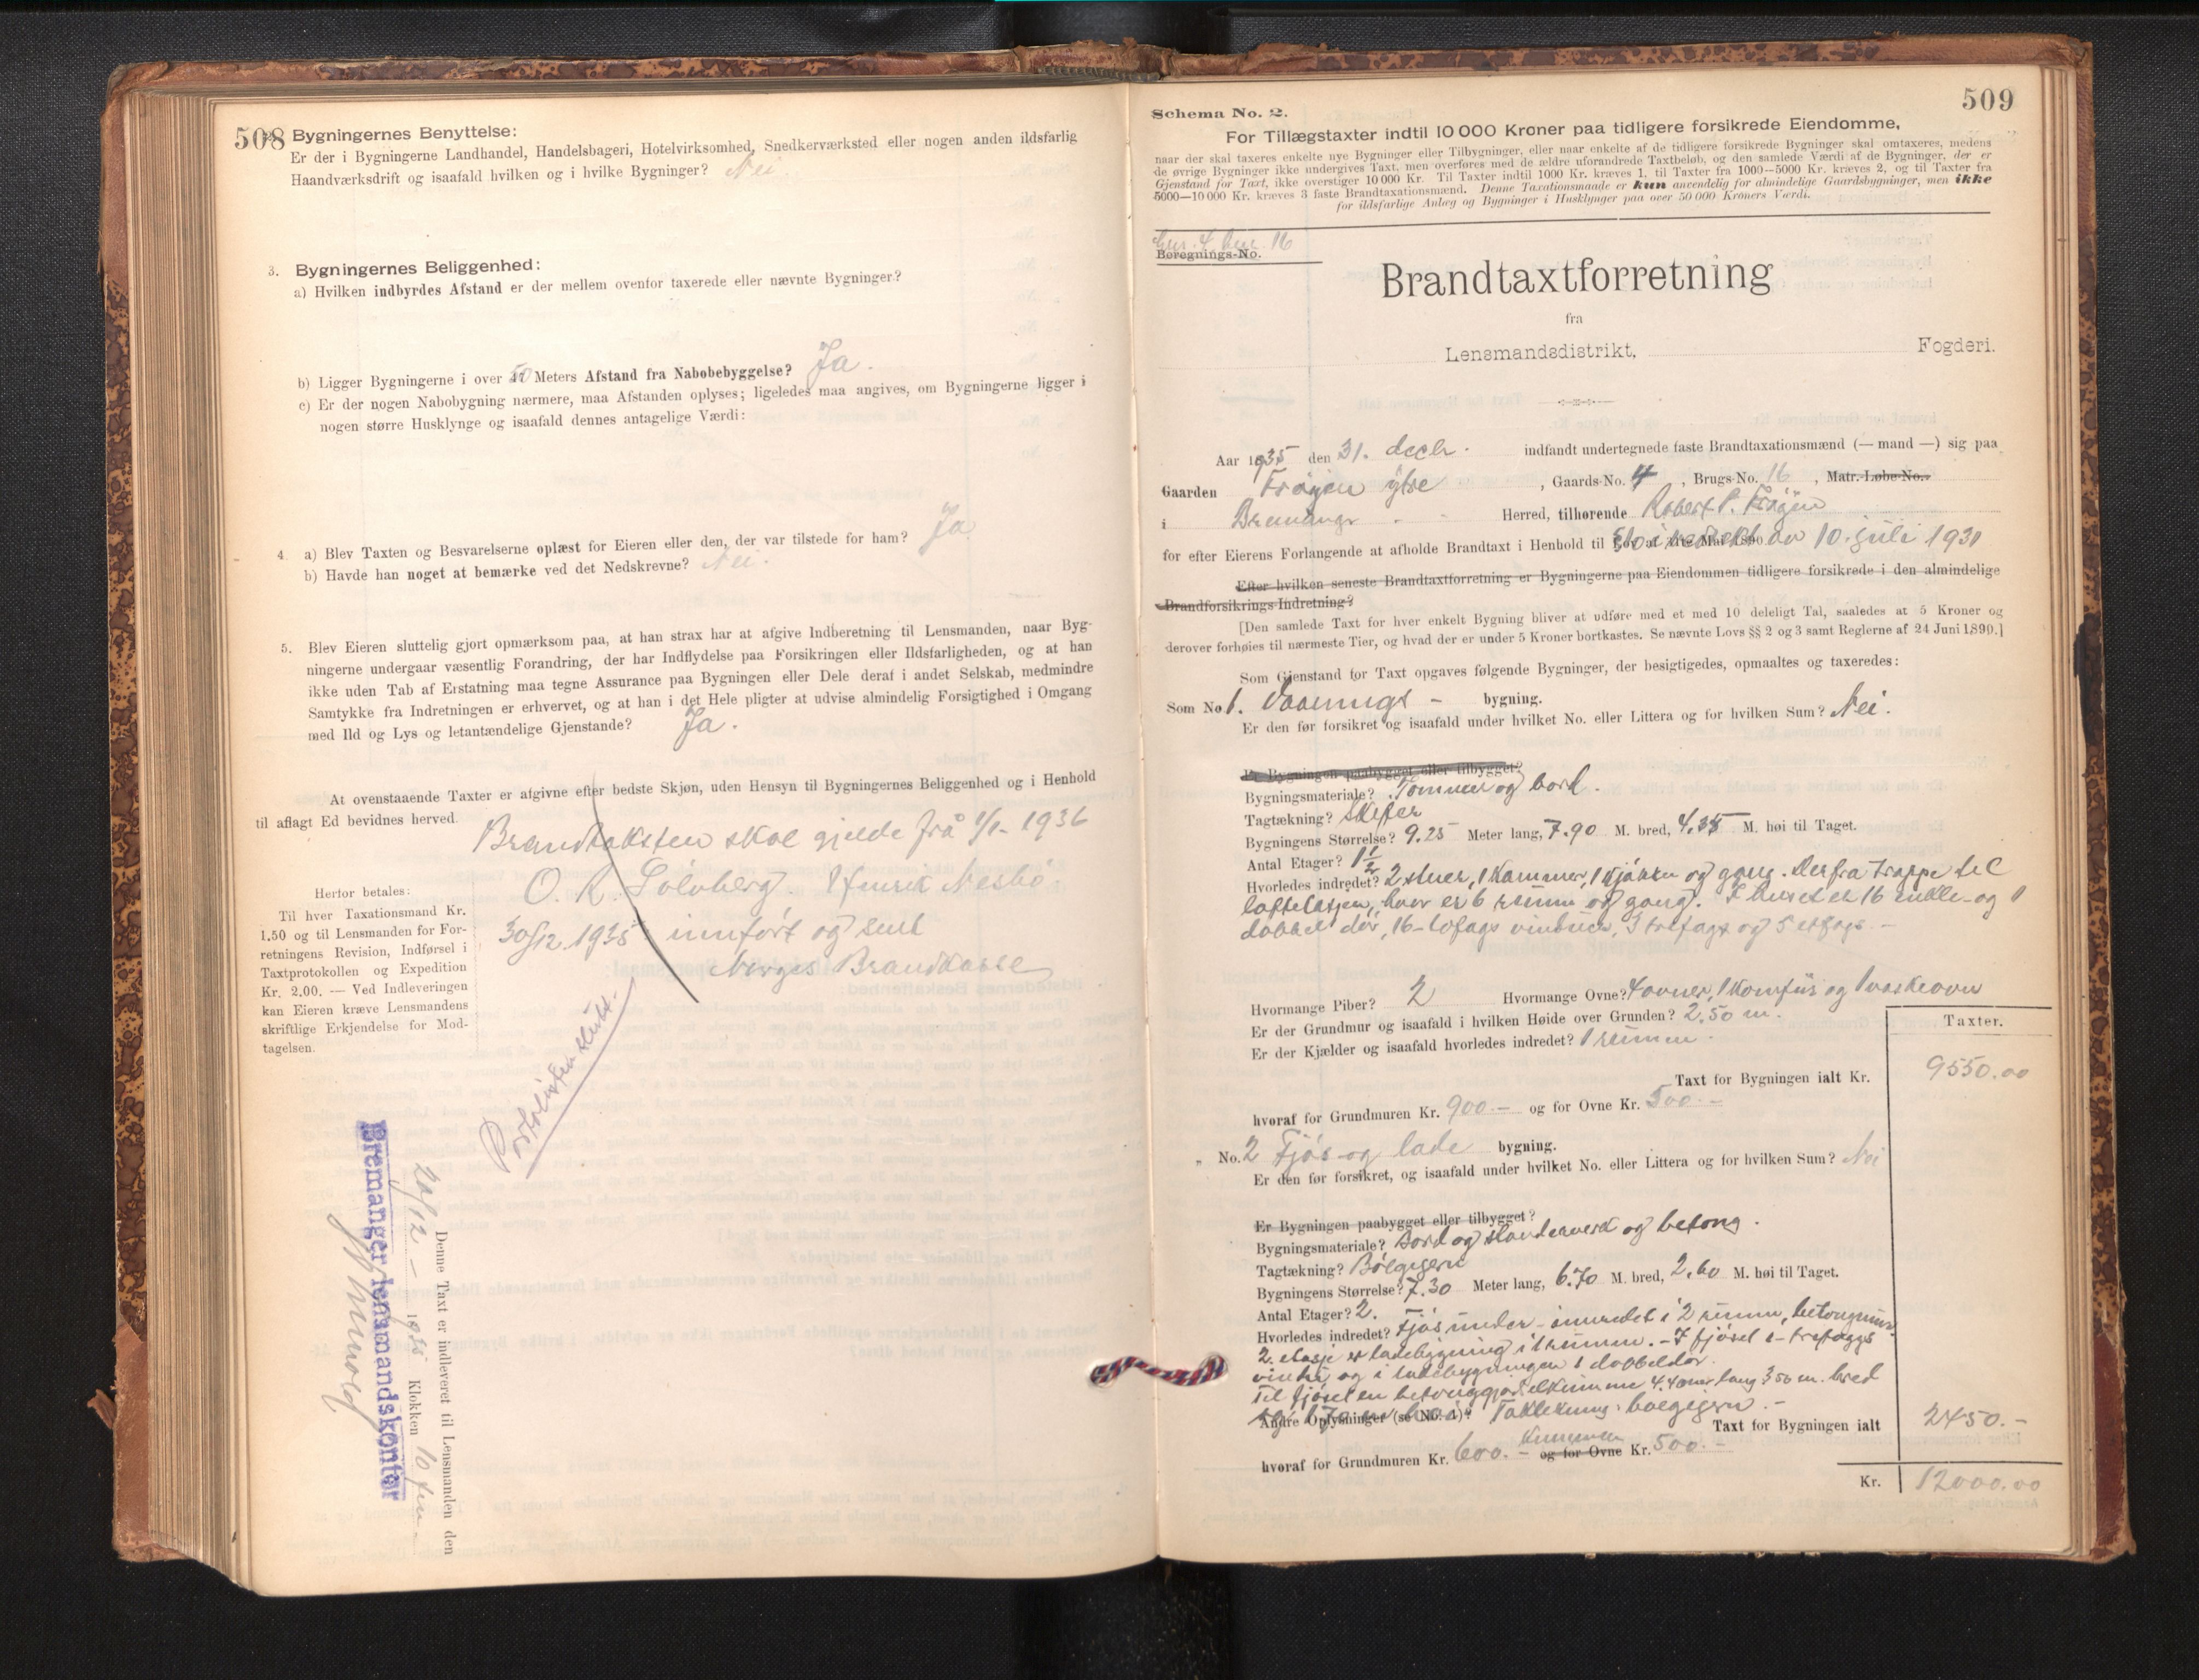 508
Bygningernes Benyttelse:
Er der i Bygningerne Landhandel, Handelsbageri, Hotelvirksomhed, Snedkerværksted eller nogen anden ildsfarlig
Haandværksdrift og isaafald hvilken og i hvilke Bygninger? Nei.
3. Bygningernes Beliggenhed:
a) Hvilken indbyrdes Afstand er der mellem ovenfor taxerede eller nævnte Bygninger?
b) Ligger Bygningerne i over 50 Meters Afstand fra Nabobebyggelse? Ja.
c) Er der nogen Nabobygning nærmere, maa Afstanden oplyses; ligeledes maa angives, om Bygningerne ligger i
nogen større Husklynge og isaafald dennes antagelige Værdi:
4. a) Blev Taxten og Besvarelserne oplæst for Eieren eller den, der var tilstede for ham? Ja
b) Havde han noget at bemærke ved det Nedskrevne? Nei.
5. Blev Eieren sluttelig gjort opmærksom paa, at han strax har at afgive Indberetning til Lensmanden, naar Byg-
ningerne undergaar væsentlig Forandring, der har Indflydelse paa Forsikringen eller Ildsfarligheden, og at han
ikke uden Tab af Erstatning maa tegne Assurance paa Bygningen eller Dele deraf i andet Selskab, medmindre
Samtykke fra Indretningen er erhvervet, og at han i det Hele pligter at udvise almindelig Forsigtighed i Omgang
med Ild og Lys og letantændelige Gjenstande? Ja.
At ovenstaaende Taxter er afgivne efter bedste Skjøn, uden Hensyn til Bygningernes Beliggenhed og i Henhold
til aflagt Ed bevidnes herved.
Brandtaksten skal gjelde frå 1/1- 1936
O. R. Solvberg. Henrik Nesbö.
30/12 1935 innført og sent
Norges Brandkasse
Herfor betales:
Til hver Taxationsmand Kr.
1.50 og til Lensmanden for For-
retningens Revision, Indførsel i
Taxtprotokollen og Expedition
Kr. 2.00. — Ved Indleveringen
kan Eieren kræve Lensmandens
skriftlige Erkjendelse for Mod-
tagelsen.
Denne Taxt er indleveret til Lensmanden den
20/12 - 1935 Klokken 10 fm
Bremanger lensmandskontor
509
Schema No. 2.
For Tillægstaxter indtil 10 000 Kroner paa tidligere forsikrede Eiendomme,
naar der skal taxeres enkelte nye Bygninger eller Tilbygninger, eller naar enkelte af de tidligere forsikrede Bygninger skal omtaxeres, medens
de øvrige Bygninger ikke undergives Taxt, men overføres med de ældre uforandrede Taxtbeløb, og den samlede Værdi af de Bygninger, der er
Gjenstand for Taxt, ikke overstiger 10 000 Kr. Til Taxter indtil 1000 Kr. kræves 1, til Taxter fra 1000—5000 Kr. kræves 2, og til Taxter fra
5000—10 000 Kr. kræves 3 faste Brandtaxationsmænd. Denne Taxationsmaade er kun anvendelig for almindelige Gaardsbygninger, men ikke
for ildsfarlige Anlæg og Bygninger i Husklynger paa over 50 000 Kroners Værdi.
Beregnings-No.
Brandtaxtforretning
fra
Lensmandsdistrikt, Fogderi.
Aar 1935 den 31. decbr. indfandt undertegnede faste Brandtaxationsmænd (— mand —) sig paa
Gaarden Frøyen ytre, Gaards-No. 4, Brugs-No. 16, Matr.-Løbe-No.
i Bremanger Herred, tilhørende Robert P. Frøyen
for efter Eierens Forlangende at afholde Brandtaxt i Henhold til Lov av 10. juli 1931
Efter hvilken seneste Brandtaxtforretning er Bygningerne paa Eiendommen tidligere forsikrede i den almindelige
Brandforsikrings-Indretning?
[Den samlede Taxt for hver enkelt Bygning bliver at udføre med et med 10 deleligt Tal, saaledes at 5 Kroner og
derover forhøies til nærmeste Tier, og hvad der er under 5 Kroner bortkastes. Se nævnte Lovs §§ 2 og 3 samt Reglerne af 24 Juni 1890.]
Som Gjenstand for Taxt opgaves følgende Bygninger, der besigtigedes, opmaaltes og taxeredes:
Som No 1. Vaanings - bygning.
Er den før forsikret og isaafald under hvilket No. eller Littera og for hvilken Sum? Nei.
Er Bygningen paabygget eller tilbygget?
Bygningsmateriale? Tömmer og bord.
Tagtækning? Skifer
Bygningens Størrelse? 9.25 Meter lang, 7.90 M. bred, 4.35 M. høi til Taget.
Antal Etager? 1 1/2
Hvorledes indredet? 2 stuer, 1 kammer, 1 kjøkken og gang. Derfra trappe til
loftetasjen, hvor er 6 rumm og gang. I huset er 16 enkle- og 1
dobbel dör, 16-tofags vinduer, 3 trefags og 5 etfags. -
Hvormange Piber? 2 Hvormange Ovne? 4 ovner, 1 komfür og 1 vaskeovn
Er der Grundmur og isaafald i hvilken Høide over Grunden? 2.50 m.
Er der Kjælder og isaafald hvorledes indredet? 1 rumm.
Taxter.
Taxt for Bygningen ialt Kr. 9550.00
hvoraf for Grundmuren Kr. 900.- og for Ovne Kr. 500.-
„ No. 2 Fjös- og lade bygning.
Er den før forsikret, og isaafald under hvilket No. eller Littera og for hvilken Sum? Nei
Er Bygningen paabygget eller tilbygget?
Bygningsmateriale? Bord og standerverk og betong.
Tagtækning? Bölgejern
Bygningens Størrelse? 7.30 Meter lang, 6.70 M. bred, 2.60 M. høi til Taget.
Antal Etager? 2.
Hvorledes indredet? Fjös under - innredet i 2 rumm, betongmur.
2. etasje er ladebygning i 1 rumm. - I fjöset 2- trefaggs
vindu og i ladebygningen 1 dobbeldör.
Til fjöset en betonggjödselkumme 4.40 m lang 3.50 m. bred
Andre Oplysninger (se No. 1)? Taktekning: bølgejern. -
Taxt for Bygningen ialt 2450.-
hvoraf for Grundmuren Kr. 600.- Kummen og for Ovne Kr. 500.-
Kr. 12000.00